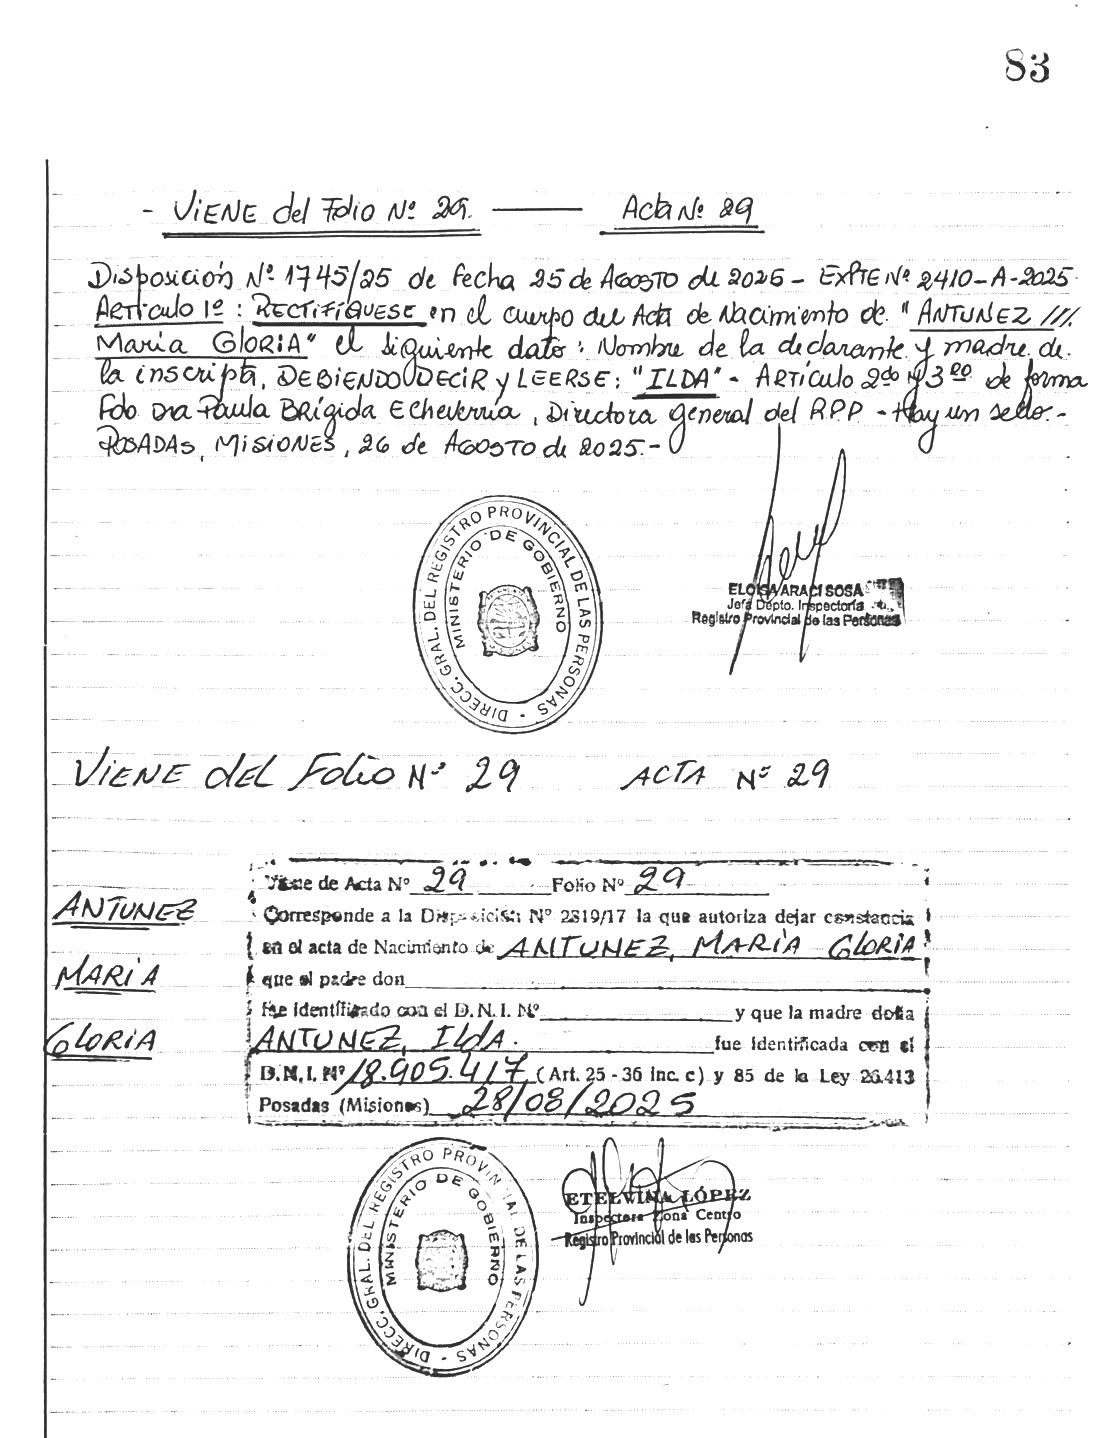 83
- VIENE del Folio Nº 29. —— Acta Nº 29
Disposición Nº 1745/25 de fecha 25 de AGOSTO de 2025 - EXPTE Nº 2410-A-2025
ARTÍCULO 1º : RECTIFÍQUESE en el cuerpo del Acta de Nacimiento de "ANTUNEZ ///.
María GLORIA" el siguiente dato: Nombre de la declarante y madre de
la inscripta, DEBIENDO DECIR y LEERSE: "ILDA" - ARTÍCULO 2do y 3ro de forma
Fdo Dra Paula BRÍGIDA Echeverria, Directora general del RPP - Hay un sello.-
POSADAS, MISIONES, 26 de AGOSTO de 2025.-
DIRECC. GRAL. DEL REGISTRO PROVINCIAL DE LAS PERSONAS -
MINISTERIO DE GOBIERNO
ELOISA ARACI SOSA
Jefa Dpto. Inspectoría
Registro Provincial de las Personas
VIENE DEL FOLIO Nº 29 ACTA Nº 29
Viene de Acta Nº 29 Folio Nº 29
ANTUNEZ
Corresponde a la Disposición Nº 2819/17 la que autoriza dejar constancia
en el acta de Nacimiento de ANTUNEZ, MARÍA GLORIA
MARÍA
que el padre don
fue identificado con el D.N.I. Nº y que la madre doña
GLORIA
ANTUNEZ, ILDA. fue identificada con el
D.N.I. Nº 18.905.417 (Art. 25 - 36 inc. c) y 85 de la Ley 26.413
Posadas (Misiones) 28/08/2025
DIRECC. GRAL. DEL REGISTRO PROVINCIAL DE LAS PERSONAS -
MINISTERIO DE GOBIERNO
ETELVINA LÓPEZ
Inspectora Zona Centro
Registro Provincial de las Personas